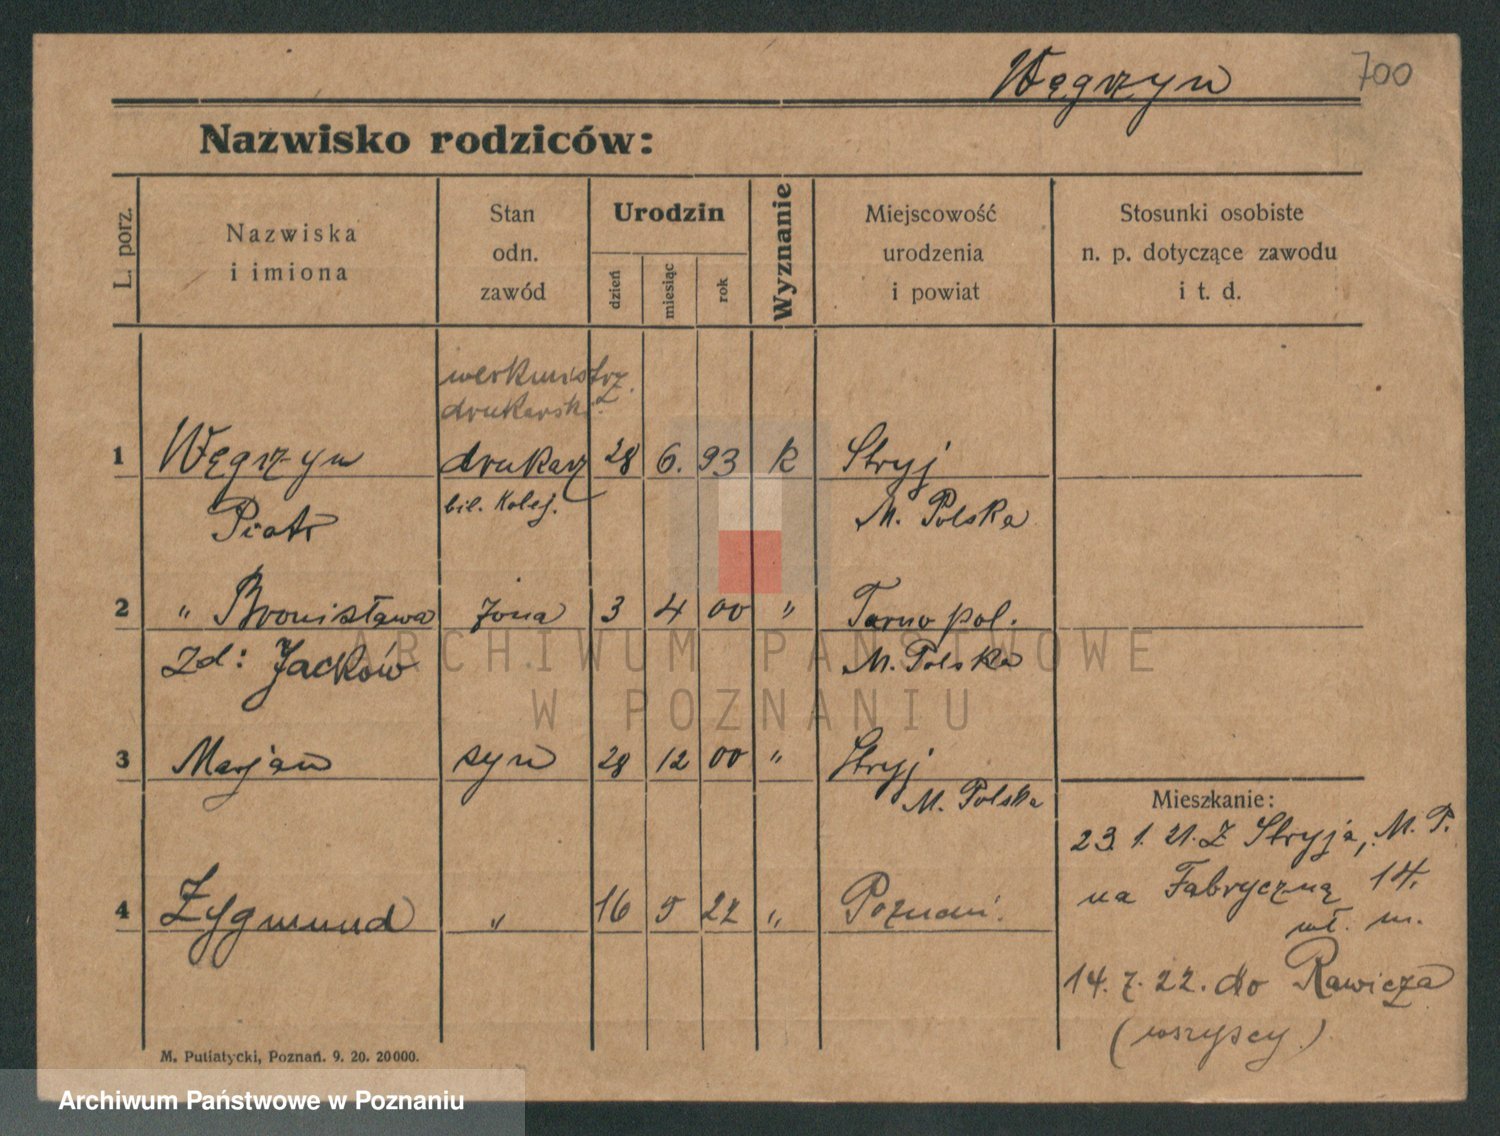 Węgrzyn 700
Nazwisko rodziców:
L. porz.
Nazwiska
i imiona
Stan
odn.
zawód
Urodzin
dzień
miesiąc
rok
Wyznanie
Miejscowość
urodzenia
i powiat
Stosunki osobiste
n. p. dotyczące zawodu
i t. d.
werkmistrz
drukarski
1 Węgrzyn drukarz 28 6. 93 k Stryj
Piotr bil. Kolej. M. Polska
2 " Bronisława żona 3 4 00 " Tarnopol.
zd: Jacków M. Polska
3 Marjan syn 28 12 00 " Stryj
M. Polska
Mieszkanie:
23. 1. 21. Z Stryja, M. P.
na Fabryczną 14.
wł. m.
4 Zygmund " 16 5 22 " Poznań.
14. 7. 22. do Rawicza
(wszyscy.)
M. Putiatycki, Poznań. 9. 20. 20000.
ARCHIWUM PAŃSTWOWE
W POZNANIU
Archiwum Państwowe w Poznaniu